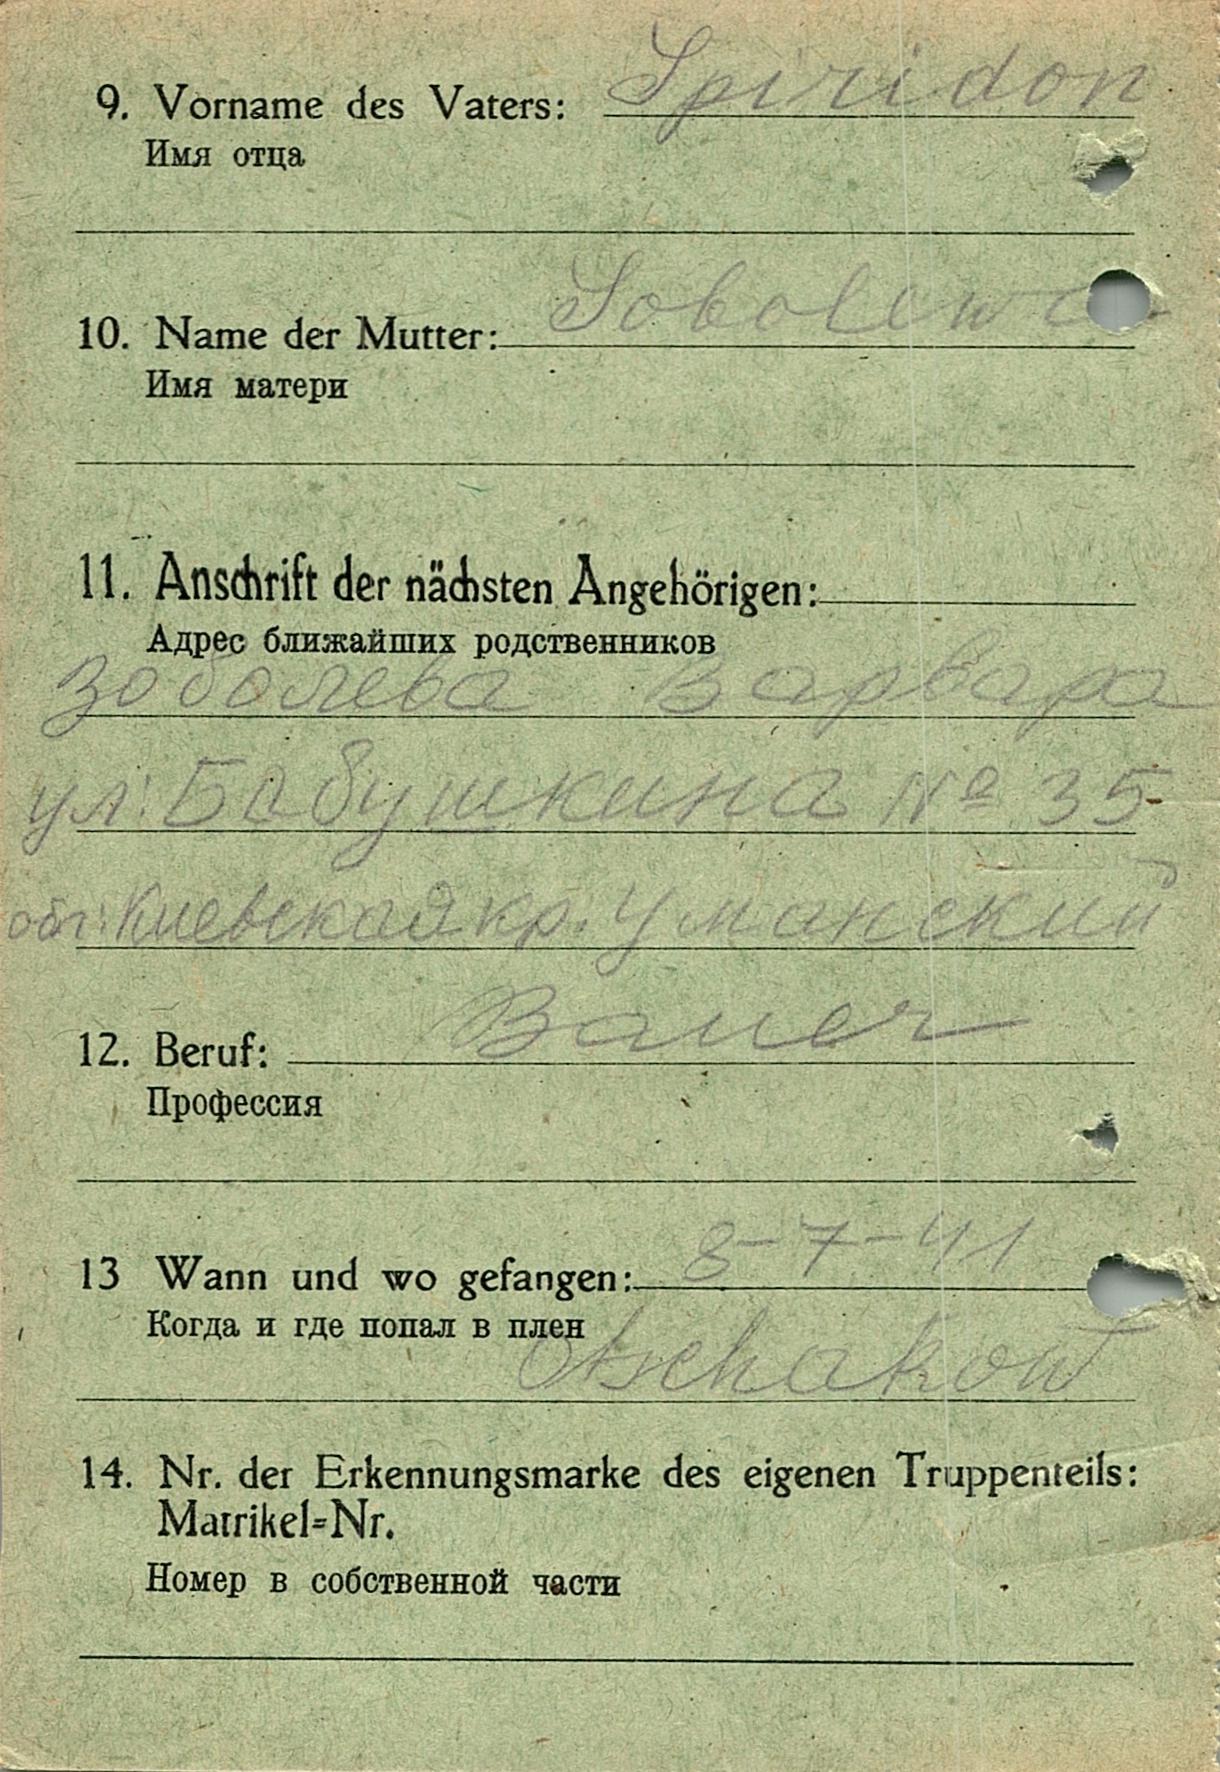 9. Vorname des Vaters: Spiridon
Имя отца
10. Name der Mutter: Sobolewa
Имя матери
11. Anschrift der nächsten Angehörigen:
Адрес ближайших родственников
Зоболева Варвара
ул: Бабушкина № 35
обл: Киевская кр. Уманский
12. Beruf: Bauer
Профессия
13 Wann und wo gefangen: 8-7-41
Когда и где попал в плен
Otschakow
14. Nr. der Erkennungsmarke des eigenen Truppenteils:
Matrikel=Nr.
Номер в собственной части